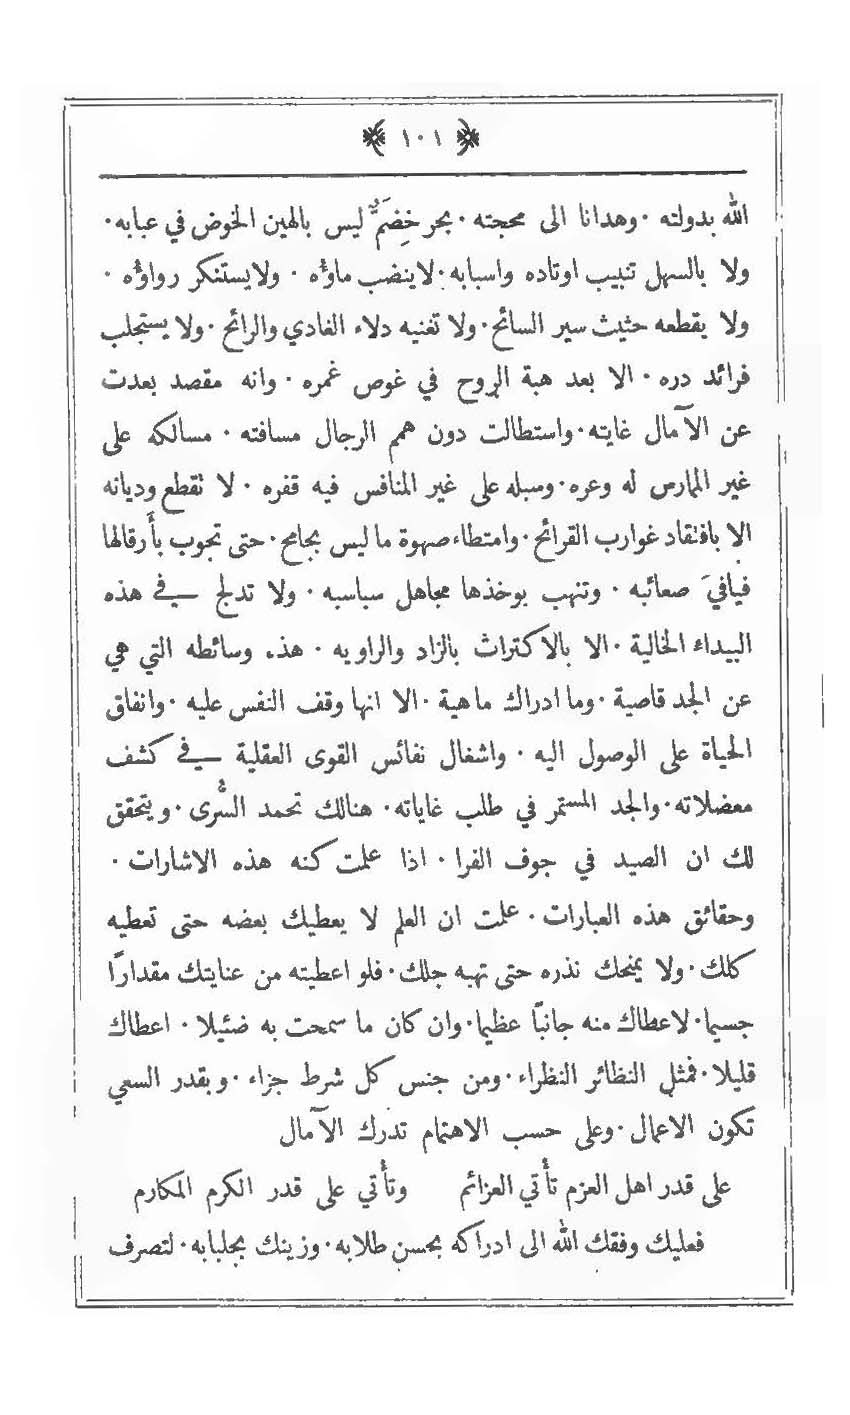 ﴿ ١٠١ ﴾
الله بدولته · وهدانا الى محجته · بحر خِضَمٌّ ليس بالهين الخوض في عبابه ·
ولا بالسهل تنبيب اوتاده واسبابه · لاينضب ماوُه · ولايستنكر رواوُه ·
ولا يقطعه حثيث سير السائح · ولا تغنيه دلاء الغادي والرائح · ولا يستجلب
فرائد دره · الا بعد هبة الروح في غوص غمره · وانه مقصد بعدت
عن الآمال غايته · واستطالت دون همم الرجال مسافته · مسالكه على
غير الممارس له وعره · وسبله على غير المنافس فيه قفره · لا تقطع وديانه
الا بافتقاد غوارب القرائح · وامتطاء صهوة ما ليس بجامح · حتى تجوب بأَرقالها
فيافيَ صعائبه · وتنهب بوخذها مجاهل سباسبه · ولا تدلج في هذه
البيداء الخالية · الا بالاكتراث بالزاد والراويه · هذه وسائطه التي هي
عن الجد قاصية · وما ادراك ماهية · الا انها وقف النفس عليه · وانفاق
الحياة على الوصول اليه · واشغال نفائس القوى العقلية في كشف
معضلاته · والجد المستمر في طلب غاياته · هنالك تحمد السُّرى · ويتحقق
لك ان الصيد في جوف الفرا · اذا علمت كنه هذه الاشارات ·
وحقائق هذه العبارات · علمت ان العلم لا يعطيك بعضه حتى تعطيه
كلك · ولا يمنحك نذره حتى تهبه جلك · فلو اعطيته من عنايتك مقدارًا
جسيما · لاعطاك منه جانبًا عظيما · وان كان ما سمحت به ضئيلا · اعطاك
قليلا · فمثل النظائر النظراء · ومن جنس كل شرط جزاء · وبقدر السعي
تكون الاعمال · وعلى حسب الاهتمام تدرك الآمال
على قدر اهل العزم تأْتي العزائم وتأْتي على قدر الكرم المكارم
فعليك وفقك الله الى ادراكه بحسن طلابه · وزينك بجلبابه · لتصرف